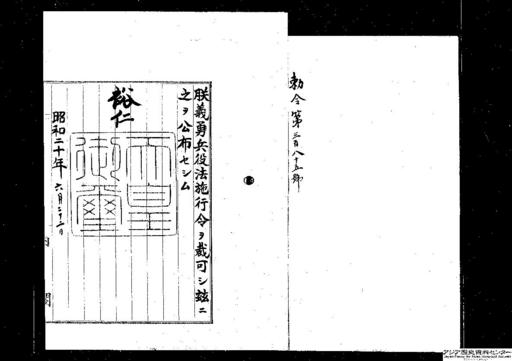 勅令第三百八十五号
朕義勇兵役法施行令ヲ裁可シ玆ニ
之ヲ公布セシム
裕仁
天皇御璽
昭和二十年六月二十二日
内閣
アジア歴史資料センター